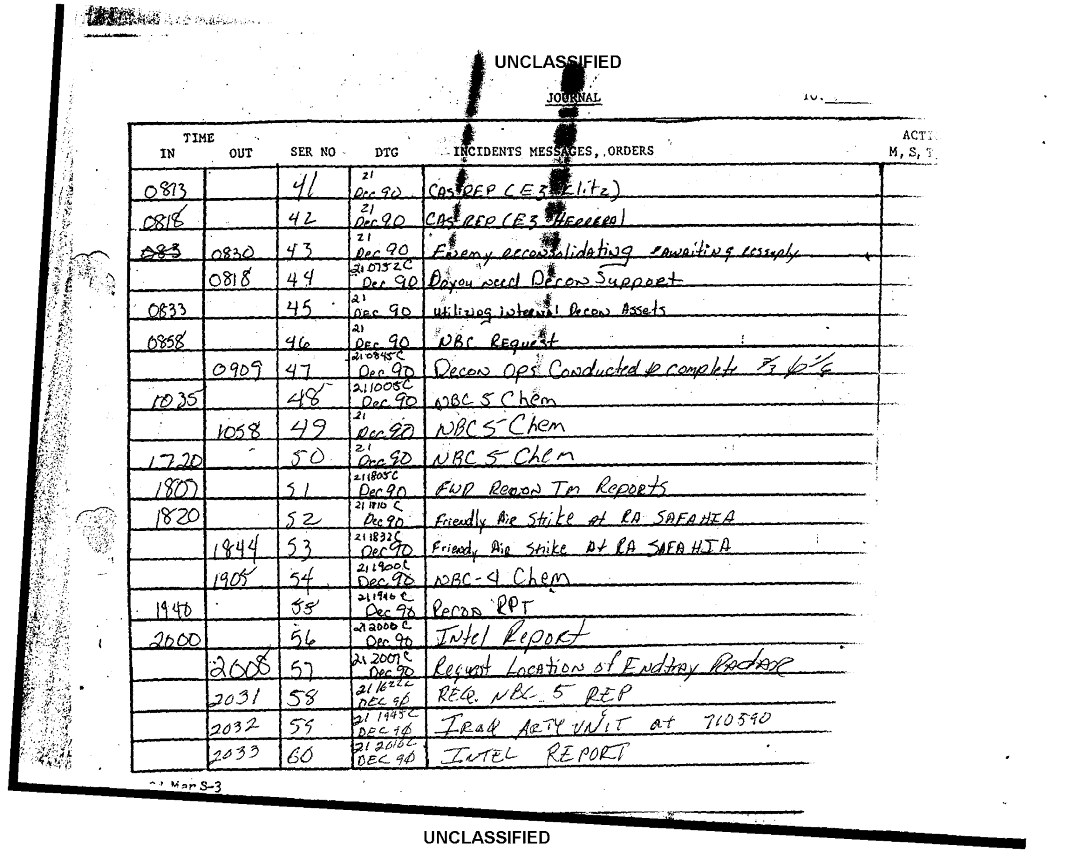 UNCLASSIFIED
JOURNAL
TIME
IN OUT SER NO DTG INCIDENTS MESSAGES, ORDERS M, S,
0813 41 21 Dec 90 CASREP (E3 Elitz)
0818 42 21 Dec 90 CASREP (E3 HERRERA)
083 0830 43 21 Dec 90 Enemy reconsolidating awaiting resupply
0818 44 210752C Dec 90 Do you need Decon Support
0833 45 21 Dec 90 utilizing internal Decon Assets
0858 46 21 Dec 90 NBC Request
0909 47 210845C Dec 90 Decon Ops Conducted complete
1035 48 211005C Dec 90 NBC 5 Chem
1058 49 21 Dec 90 NBC 5 Chem
1720 50 21 Dec 90 NBC 5 Chem
1807 51 211805C Dec 90 FWD Recon Tm Reports
1820 52 211810C Dec 90 Friendly Air Strike at RA SAFAHIA
1844 53 211832C Dec 90 Friendly Air Strike At RA SAFAHIA
1905 54 211900C Dec 90 NBC-4 Chem
1940 55 211940C Dec 90 Recon RPT
2000 56 212000C Dec 90 Intel Report
2008 57 212007C Dec 90 Request Location of Radar
2031 58 DEC 90 REQ. NBC 5 REP
2032 59 211945C DEC 90 IRAQ ARTY UNIT at 710590
2033 60 212010C DEC 90 INTEL REPORT
Mar S-3
UNCLASSIFIED